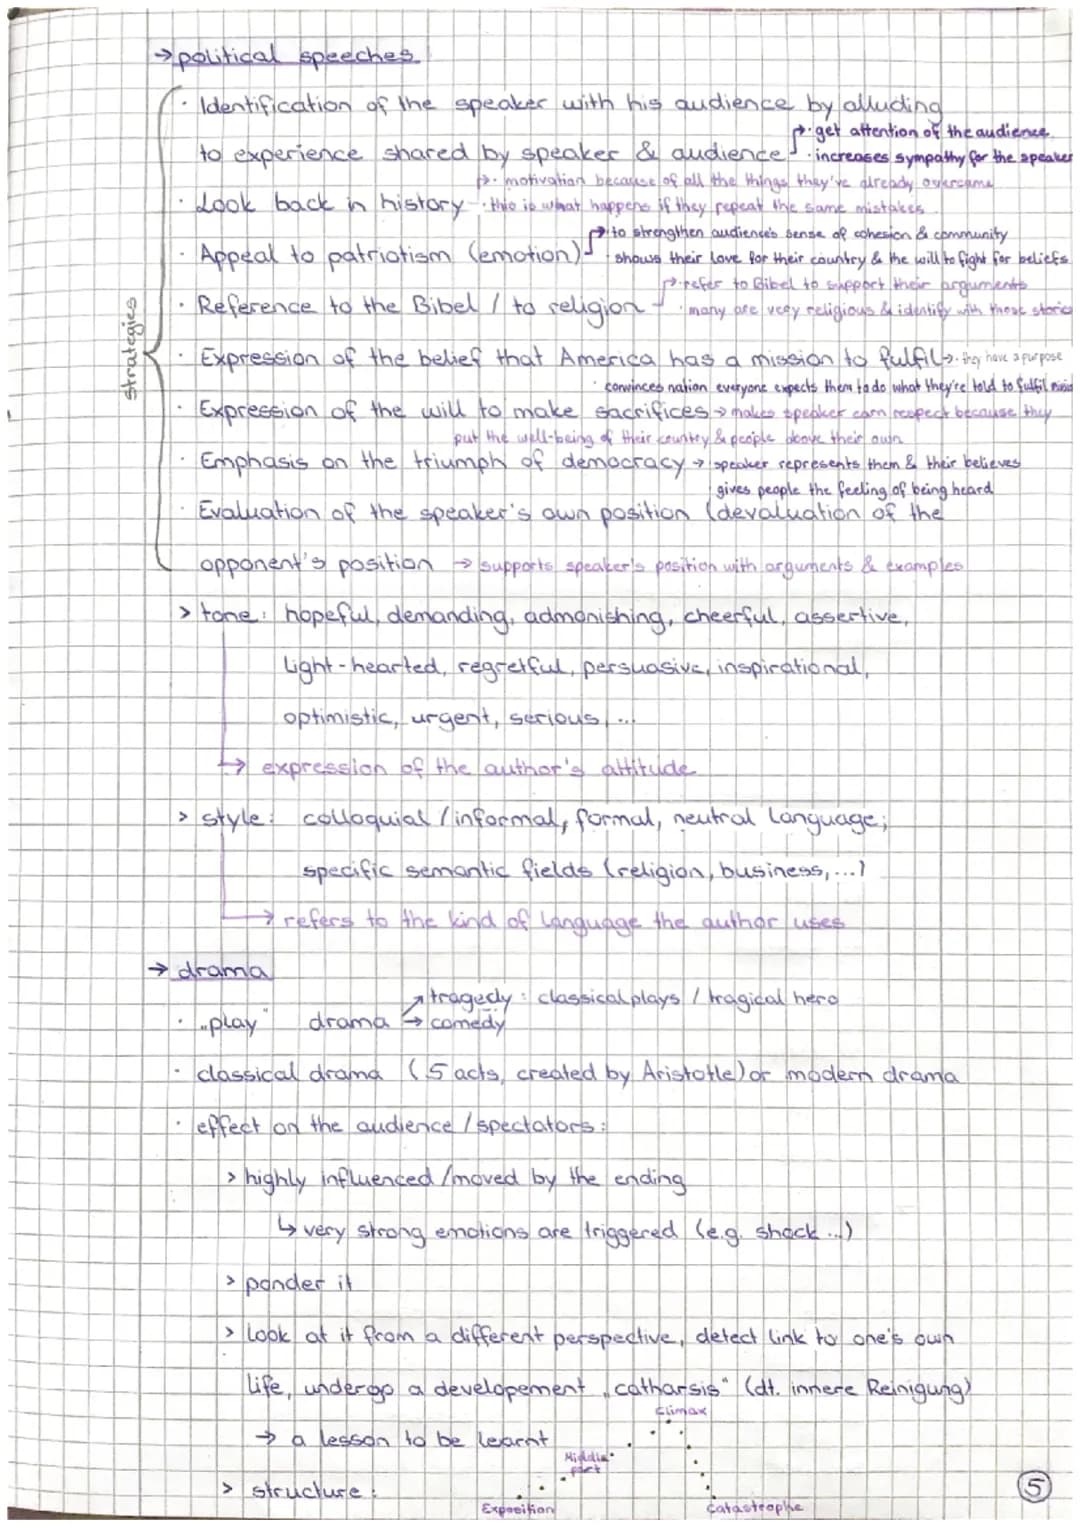 → political speeches
· Identification of the speaker with his audience by alluding
· get attention of the audience
to experience shared by speaker & audience
· increases sympathy for the speaker
· motivation because of all the things they've already overcame
· Look back in history · this is what happens if they repeat the same mistakes
to strengthen audience's sense of cohesion & community
· Appeal to patriotism (emotion) · shows their love for their country & the will to fight for beliefs
· refer to Bibel to support their arguments
· Reference to the Bibel / to religion · many are very religious & identify with those stories
strategies
· Expression of the belief that America has a mission to fulfil → · they have a purpose
· convinces nation everyone expects them to do what they're told to fulfil
· Expression of the will to make sacrifices → makes speaker earn respect because they
put the well-being of their country & people above their own
· Emphasis on the triumph of democracy → · speaker represents them & their believes
· gives people the feeling of being heard
· Evaluation of the speaker's own position (devaluation of the
opponent's position → supports speaker's position with arguments & examples
> tone: hopeful, demanding, admonishing, cheerful, assertive,
light-hearted, regretful, persuasive, inspirational,
optimistic, urgent, serious, ...
↳ expression of the author's attitude
> style: colloquial / informal, formal, neutral language;
specific semantic fields (religion, business, ...)
→ refers to the kind of language the author uses
→ drama
↗ tragedy: classical plays / tragical hero
· „play" drama → comedy
· classical drama (5 acts, created by Aristotle) or modern drama
· effect on the audience / spectators:
> highly influenced / moved by the ending
↳ very strong emotions are triggered (e.g. shock ...)
> ponder it
> look at it from a different perspective, detect link to one's own
life, undergo a developement „catharsis" (dt. innere Reinigung)
Climax
→ a lesson to be learnt
Middle
part
> structure:
Exposition
Catastrophe
5